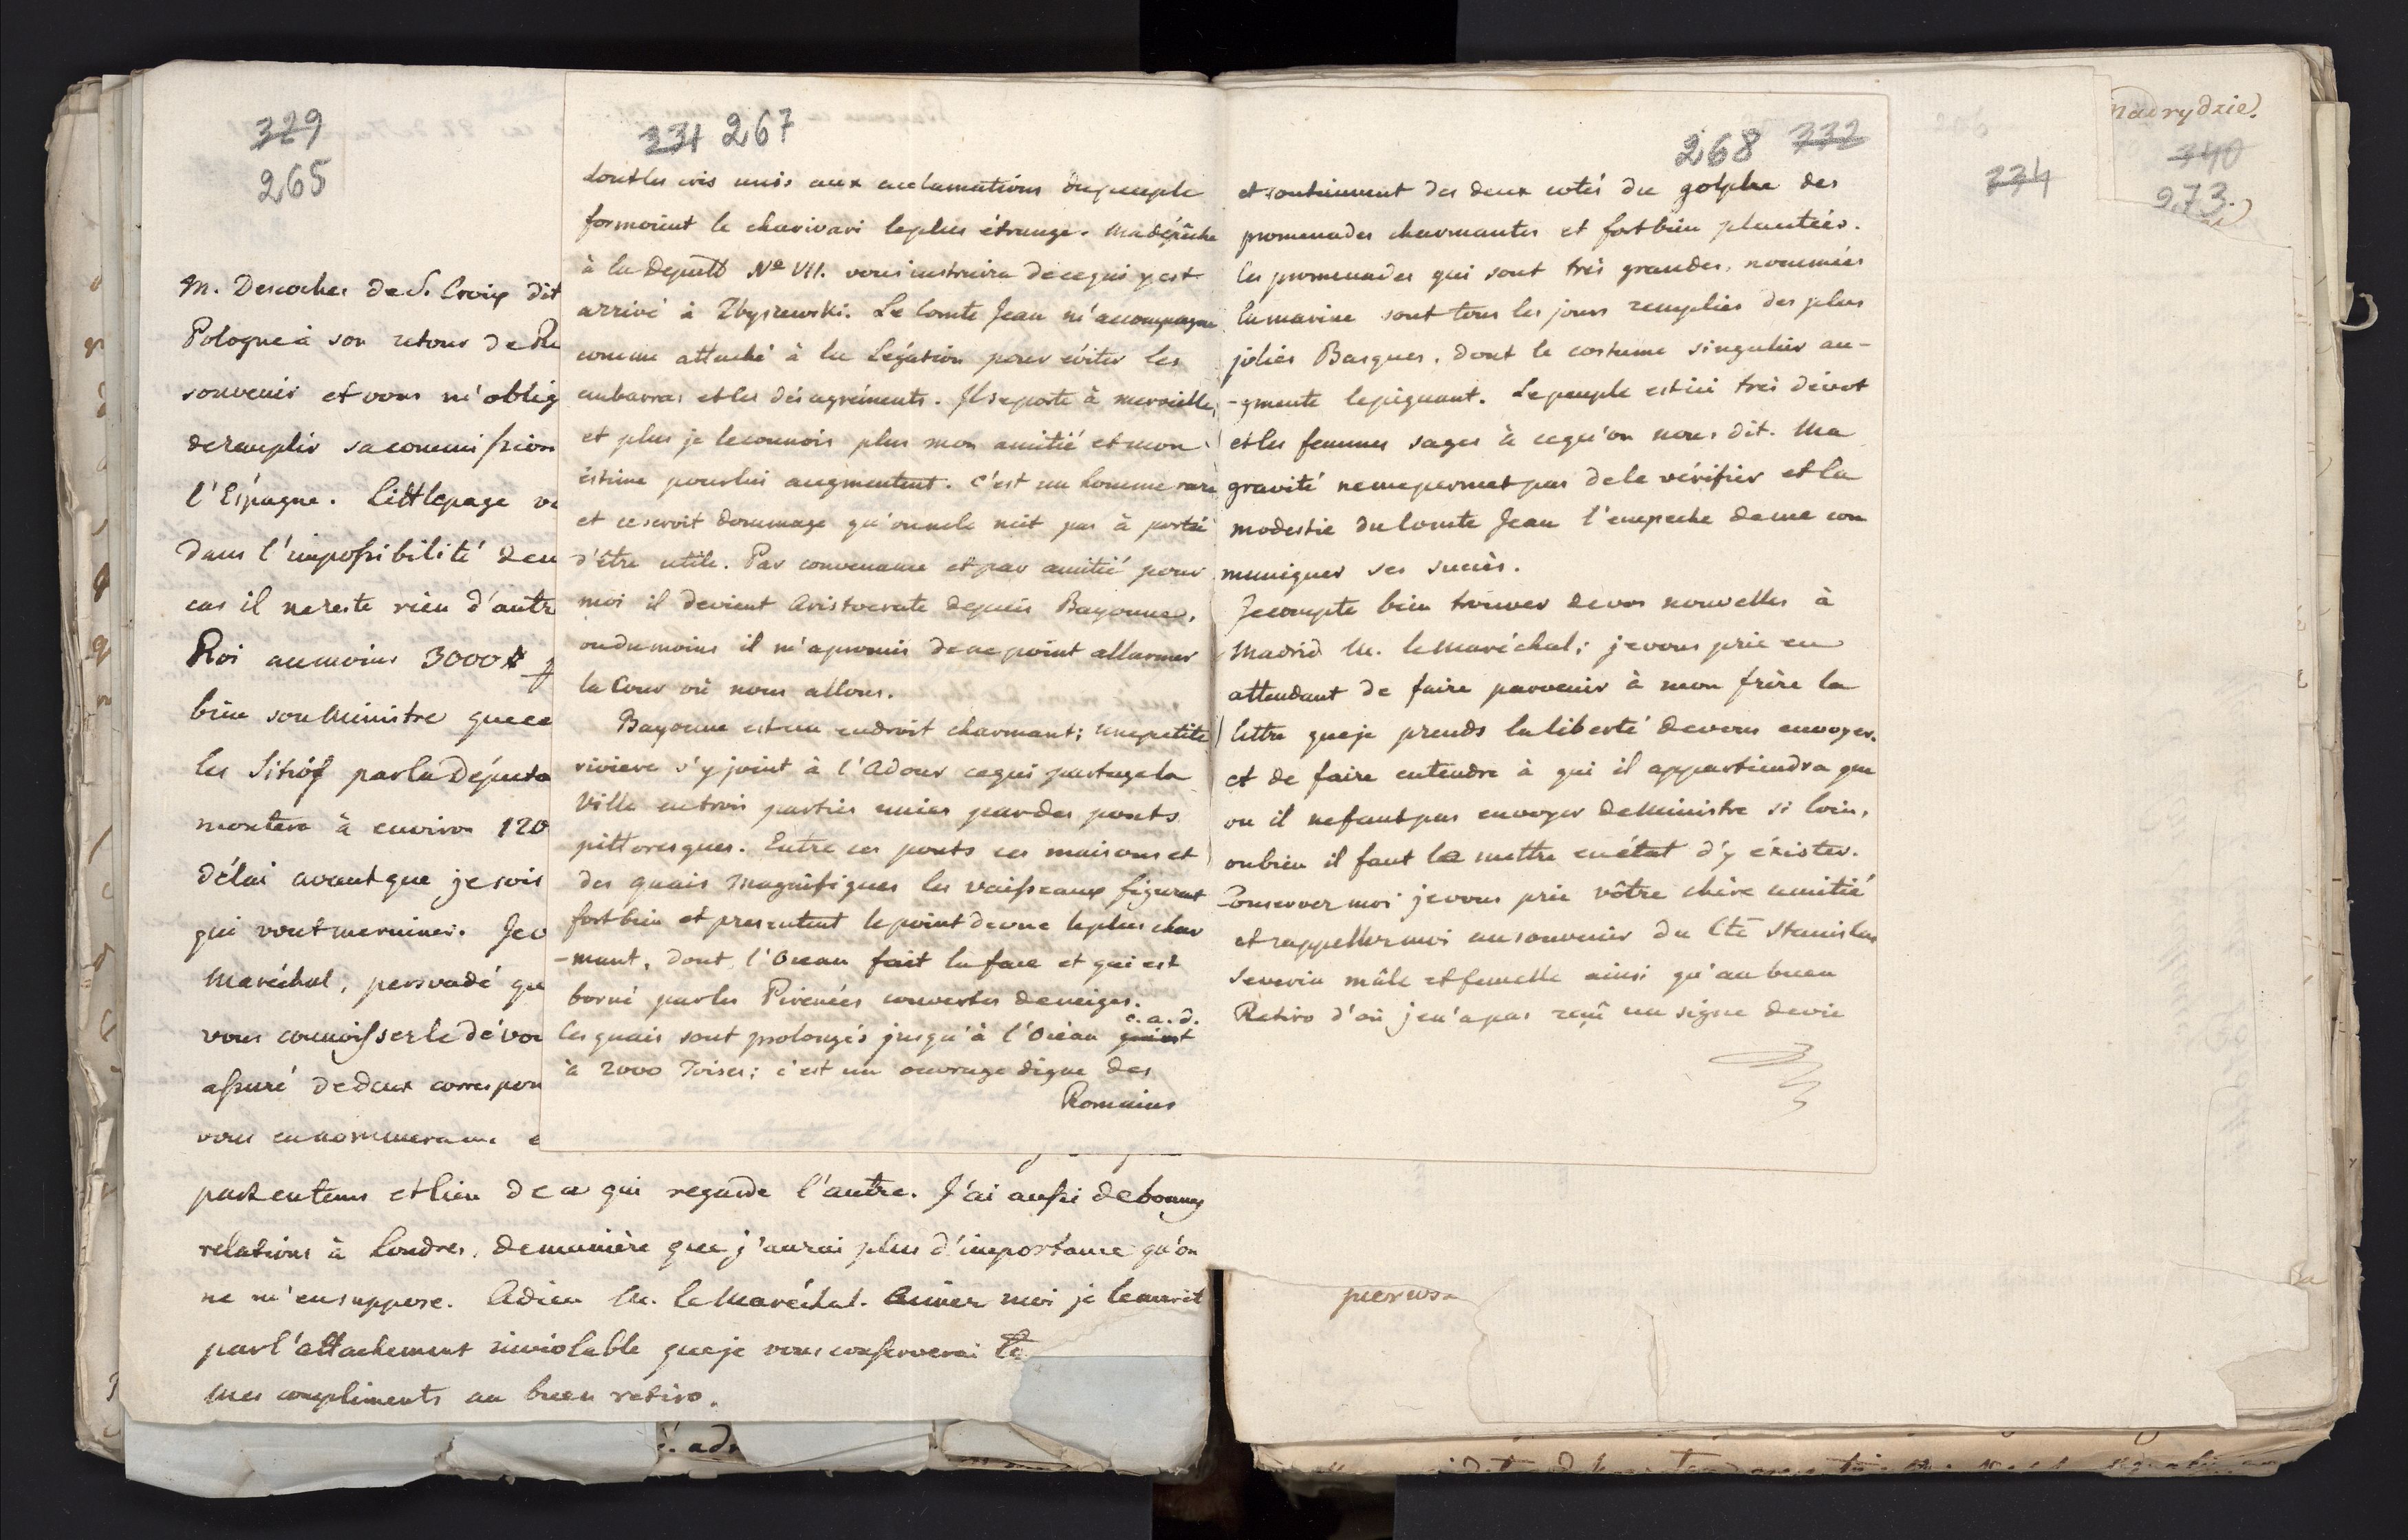 329
265
M. Descoches de S. Croix dit
Pologne à son retour de Ru
souvenir et vous m'oblig
de remplir sa commission
l'Espagne. Littlepage
dans l'impossibilité d'en
cas il ne reste rien d'autr
Roi au moins 3000#
bien son Ministre que ce
les Sitôt par la Députa
montera à environ 120
délai avant que je sois
qui vont me ruiner. Je v
Maréchal, persuadé qu
vous connoissez le dévou
assuré de deux correspon
vous en nommera
part en tems et lieu de ce qui regarde l'autre. J'ai aussi de bonnes
relations à Londres, de manière que j'aurai plus d'importance qu'on
ne m'en suppose. Adieu M. le Maréchal. Aimez moi je le mérit
par l'attachement inviolable que je vous conserverai
Mes compliments au buen retiro.
331 267
dont les cris unis aux acclamations du peuple
formoient le charivari le plus étrange. Ma dépêche
à la Deputt. Nº VII. vous instruira de ce qui y est
arrivé à Zbyszewski. Le Comte Jean m'accompagne
comme attaché à la Légation pour éviter les
embarras et les désagréments. Il se porte à merveille,
et plus je le connois plus mon amitié et mon
estime pour lui augmentent. C'est un homme rare
et ce seroit dommage qu'on ne le mit pas à portée
d'être utile. Par convenance et par amitié pour
moi il devient Aristocrate depuis Bayonne,
ou du moins il m'a promis de ne point allarmer
la Cour où nous allons.
Bayonne est un endroit charmant; une petite
riviere s'y joint à l'Adour ce qui partage la
Ville en trois parties unies par des ponts
pittoresques. Entre ces ponts ces maisons et
des quais magnifiques les vaisseaux figurent
fort bien et presentent le point de vue le plus char
-mant, dont l'Ocean fait la face et qui est
borné par les Pirenées couvertes de neiges.
Les quais sont prolongés jusqu'à l'Océan qui est c.a.d.
à 2000 Toises; c'est un ouvrage digne des
Romains
268 332
et soutiennent des deux cotés du golphe des
promenades charmantes et fort bien plantées.
les promenades qui sont très grandes, nommées
la marine sont tous les jours remplies des plus
jolies Basques, dont le costume singulier au-
-gmente le piquant. Le peuple est ici très dévot
et les femmes sages à ce qu'on nous dit. Ma
gravité ne me permet pas de le vérifier et la
modestie du Comte Jean l'empeche de me com
muniquer ses succès.
Je compte bien trouver de vos nouvelles à
Madrid M. le Maréchal; je vous prie en
attendant de faire parvenir à mon frère la
lettre que je prends la liberté de vous envoyer.
et de faire entendre à qui il appartiendra que
ou il ne faut pas envoyer de Ministre si loin,
ou bien il faut le mettre en état d'y éxister.
Conservez moi je vous prie vôtre chère amitié
et rappellez moi au souvenir du Cte Stanislas
Severin mâle et femelle ainsi qu'au buen
Retiro d'où je n'a pas reçû un signe de vie
334
Madrydzie)
340
273.